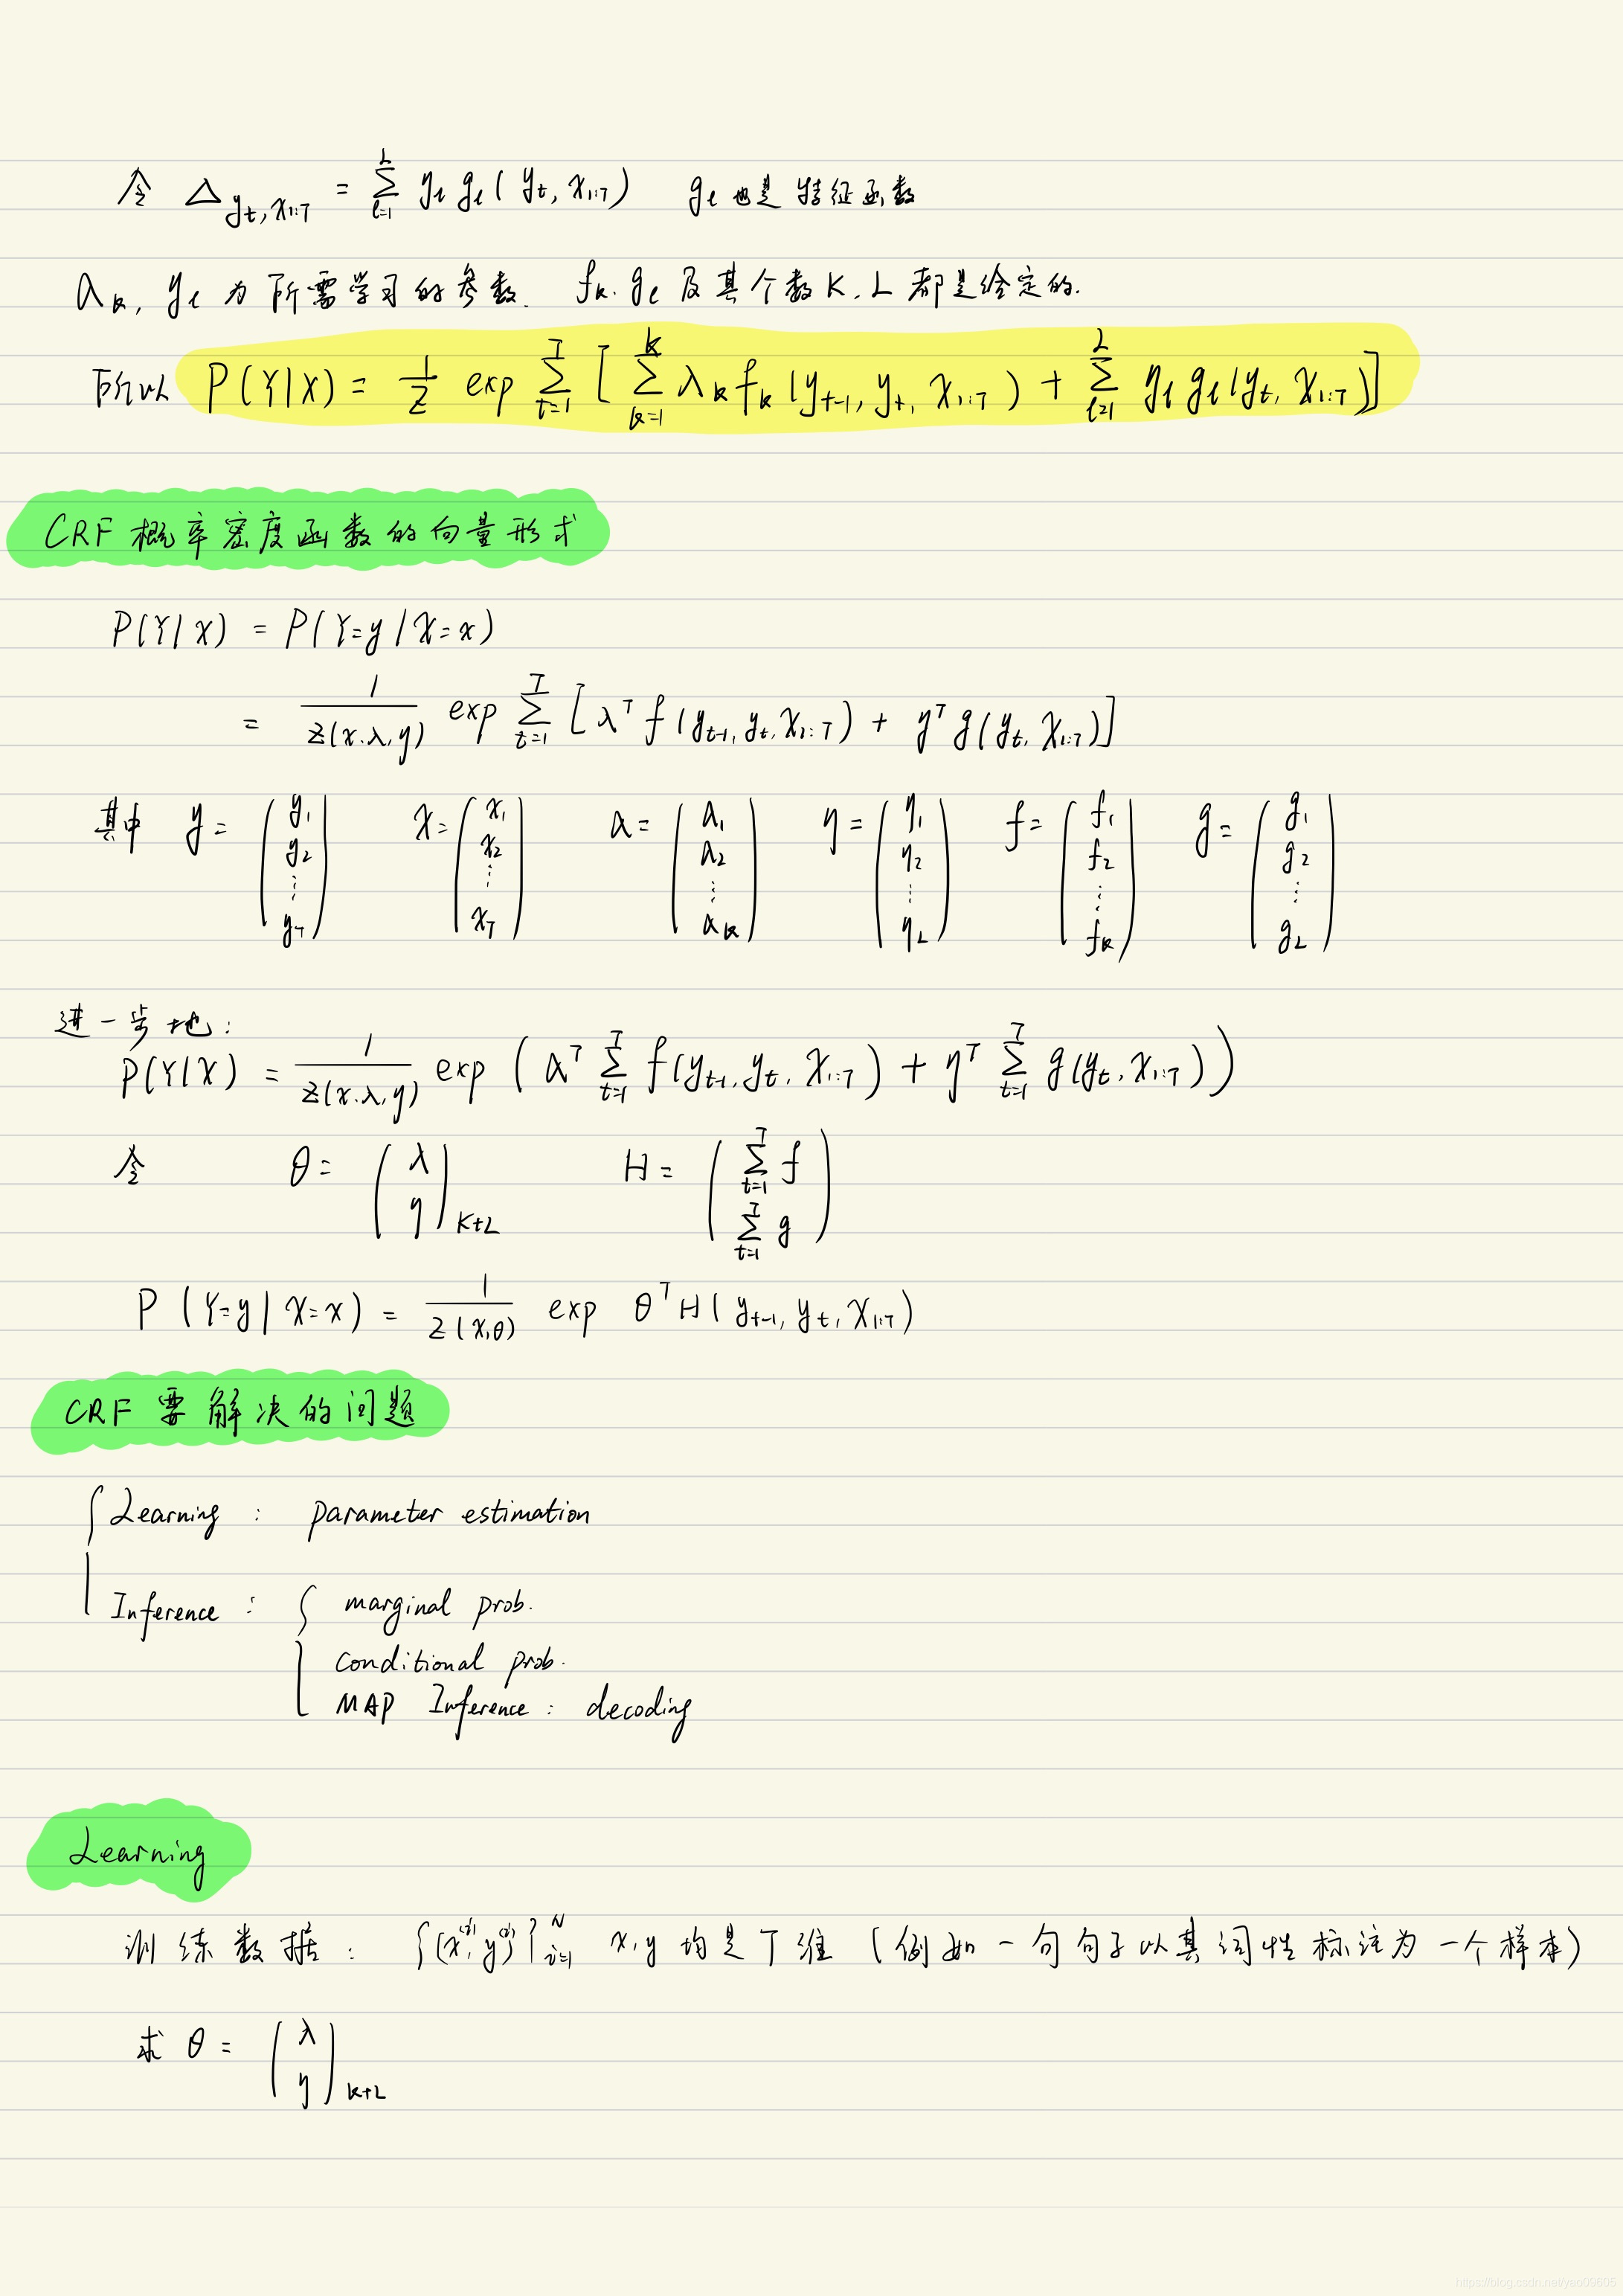 令 Δ_{y_t, x_{1:T}} = Σ_{l=1}^{L} η_l g_l(y_t, x_{1:T})   g_l 也是特征函数
λ_k, η_l 为所需学习的参数. f_k. g_l 及其个数 K. L 都是给定的.
所以 P(Y|X) = 1/Z exp Σ_{t=1}^{T} [ Σ_{k=1}^{K} λ_k f_k(y_{t-1}, y_t, x_{1:T}) + Σ_{l=1}^{L} η_l g_l(y_t, x_{1:T}) ]
CRF 概率密度函数的向量形式
P(Y|X) = P(Y=y|X=x)
= 1/Z(x.λ,η) exp Σ_{t=1}^{T} [ λ^T f(y_{t-1}, y_t, x_{1:T}) + η^T g(y_t, x_{1:T}) ]
其中 y = (y_1 y_2 ⋮ y_T) x = (x_1 x_2 ⋮ x_T) λ = (λ_1 λ_2 ⋮ λ_k) η = (η_1 η_2 ⋮ η_L) f = (f_1 f_2 ⋮ f_k) g = (g_1 g_2 ⋮ g_L)
进一步地:
P(Y|X) = 1/Z(x.λ,η) exp ( λ^T Σ_{t=1}^{T} f(y_{t-1}, y_t, x_{1:T}) + η^T Σ_{t=1}^{T} g(y_t, x_{1:T}) )
令 θ = (λ η)_{K+L} H = (Σ_{t=1}^{T} f Σ_{t=1}^{T} g)
P (Y=y|X=x) = 1/Z(x,θ) exp θ^T H(y_{t-1}, y_t, x_{1:T})
CRF 要解决的问题
{ Learning : parameter estimation
Inference : { marginal prob.
conditional prob.
MAP Inference : decoding
Learning
训练数据: {(x^{(i)}, y^{(i)})}_{i=1}^{N} x, y 均是 T 维 (例如一句句子以其词性标注为一个样本)
求 θ = (λ η)_{K+L}
https://blog.csdn.net/yao09605